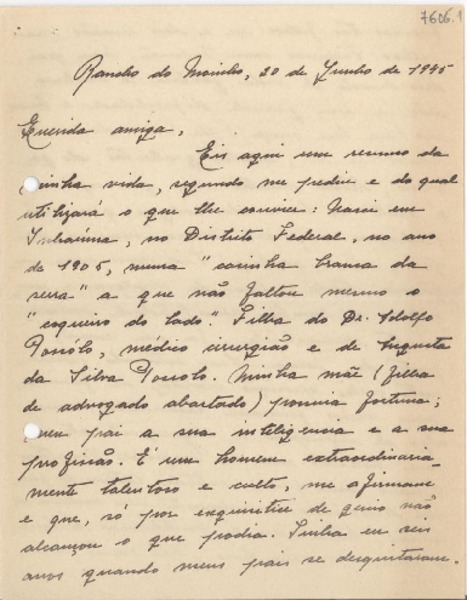 7606.1
Rancho do Moinho, 20 de Junho de 1945
Querida amiga,
Eis aqui um resumo da
minha vida, segundo me pediu e do qual
utilizará o que lhe convier: Nasci em
Inhaúma, no Distrito Federal, no ano
de 1905, numa "casinha branca da
serra" a que não faltou mesmo o
"coqueiro do lado". Filha do Dr. Adolfo
Possólo, médico cirurgião e de
da Silva Possolo. Minha mãe (filha
de advogado abastado) possuia fortuna;
meu pai a sua inteligencia e a sua
profissão. É um homem extraordinaria-
mente talentoso e culto, me afirmam
e que, só por esquisitice de genio não
alcançou o que podia. Tinha eu seis
anos quando meus pais se desquitaram.